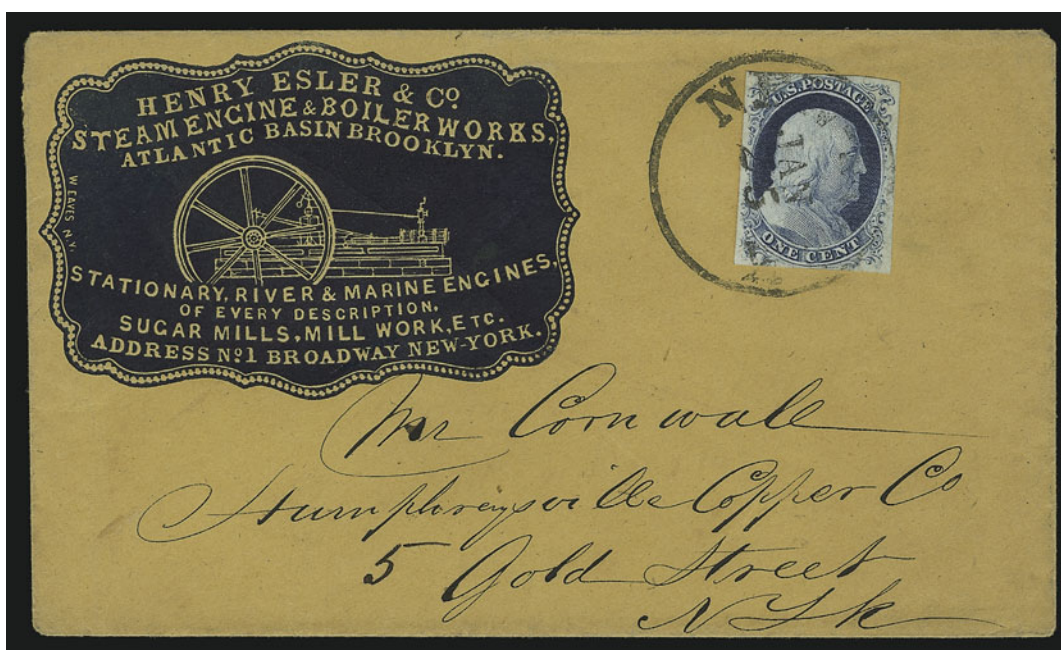 HENRY ESLER & Cº
STEAM ENGINE & BOILER WORKS,
ATLANTIC BASIN BROOKLYN.
WEAVES N.Y.
STATIONARY, RIVER & MARINE ENGINES,
OF EVERY DESCRIPTION.
SUGAR MILLS, MILL WORK, ETC.
ADDRESS Nº 1 BROADWAY NEW-YORK.
U.S. POSTAGE
ONE CENT
JAN
Mr Cornwall
Humphreysville Copper Co
5 Gold Street
N Yk